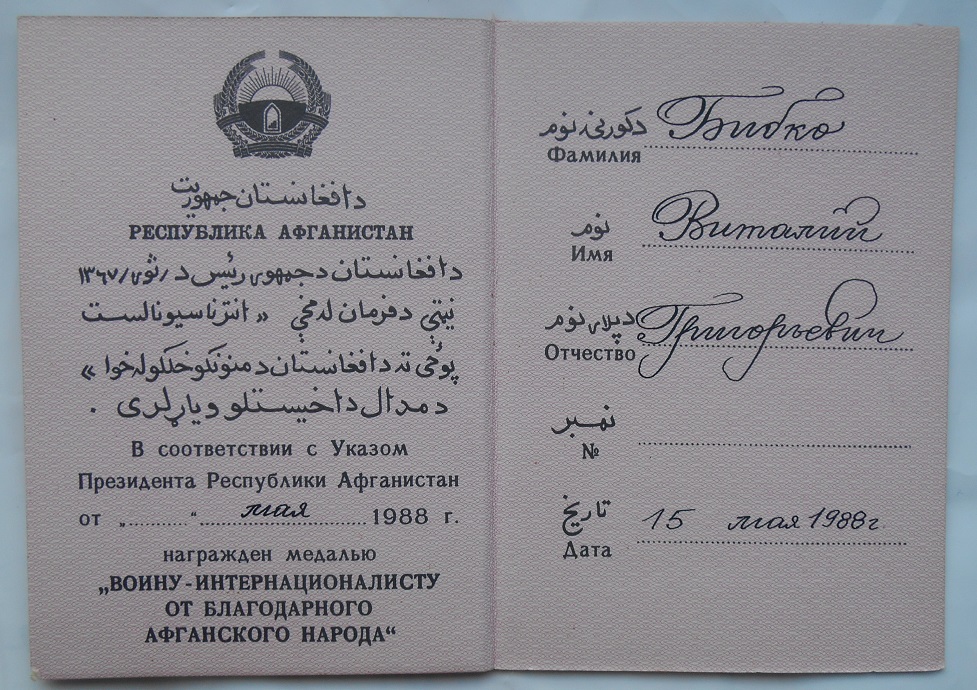 د افغانستان جمهوریت
РЕСПУБЛИКА АФГАНИСТАН
د افغانستان د جمهوری رئیس د / ثوی / ۱۳۶۷
نیټې د فرمان له مخې « انترناسیونالست
پوځی ته د افغانستان د منونکو خلکو له خوا »
د مدال د اخیستلو ویاړ لری .
В соответствии с Указом
Президента Республики Афганистан
от „ “ мая 1988 г.
награжден медалью
„ВОИНУ-ИНТЕРНАЦИОНАЛИСТУ
ОТ БЛАГОДАРНОГО
АФГАНСКОГО НАРОДА“
د کورنۍ نوم Бибко
Фамилия
نوم Виталий
Имя
د پلار نوم Григорьевич
Отчество
نمبر
№
تاریخ 15 мая 1988г.
Дата